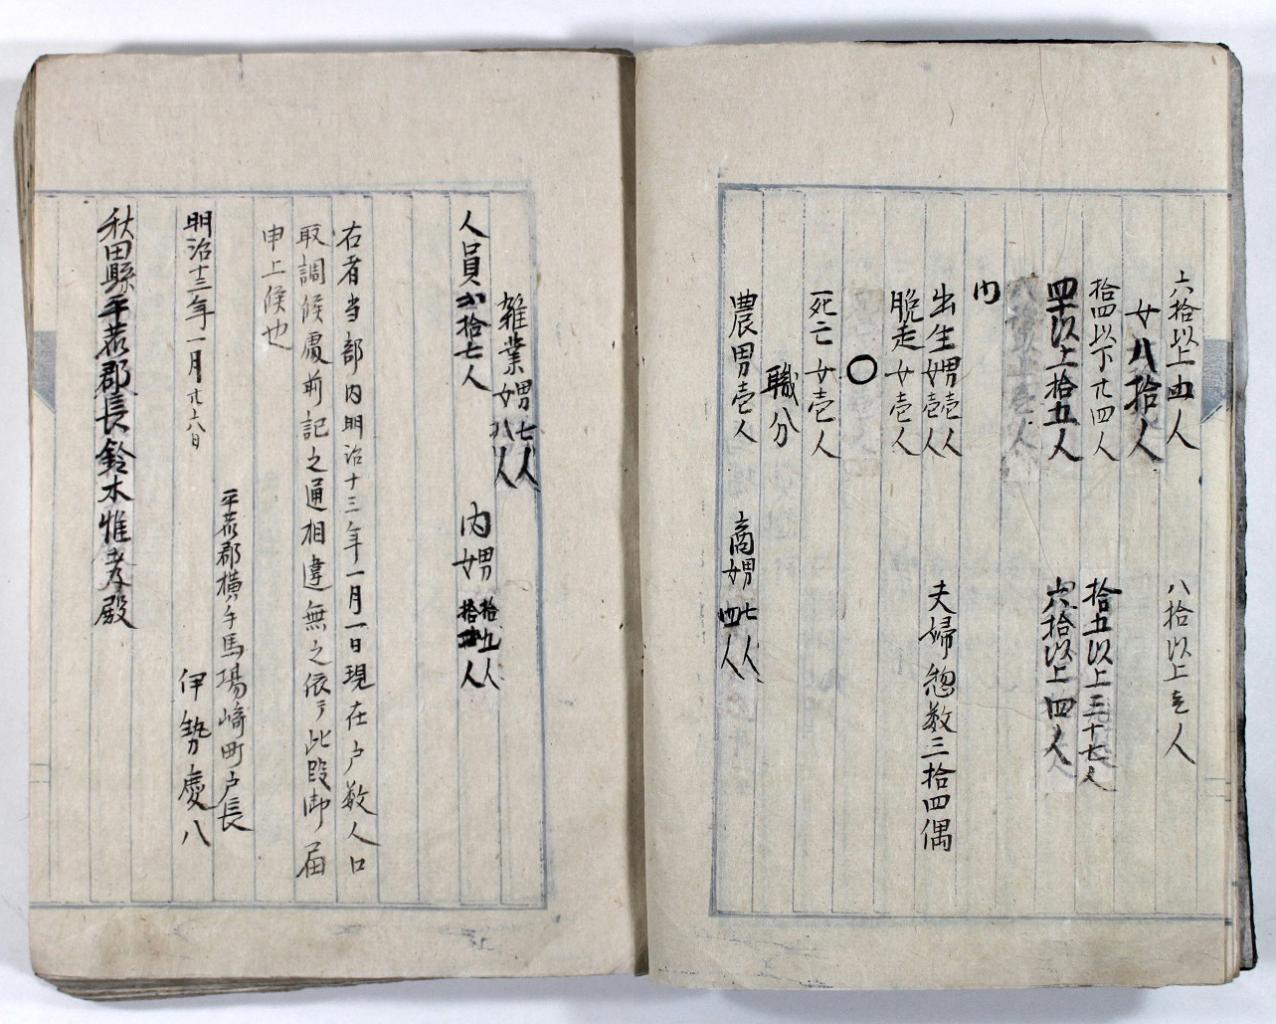 六拾以上 五人 八拾以上 壱人
女八拾人
拾四以下 廿四人 拾五以上 三十七人
四十以上 拾五人 六拾以上 四人
内
出生 男壱人 女壱人 夫婦惣数三拾四偶
脱走 女壱人
〇
死亡 女壱人
職分
農男壱人 商 男七人 女四人
雑業 男七人 女八人
人員 弐拾七人 内 男 拾五人 女 拾弐人
右者当部内明治十三年一月一日現在戸数人口
取調候処前記之通相違無之依テ此段御届
申上候也
平鹿郡横手馬場崎町戸長
明治十三年一月廿六日 伊勢慶八
秋田縣平鹿郡長鈴木惟孝殿